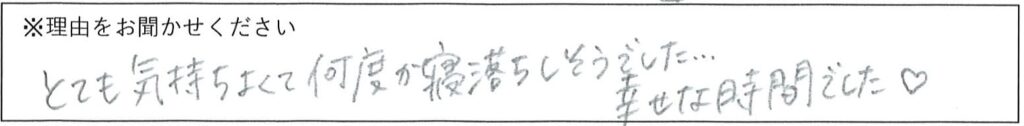 ※理由をお聞かせください
とても気持ちよくて何度か寝落ちしそうでした…
幸せな時間でした♡